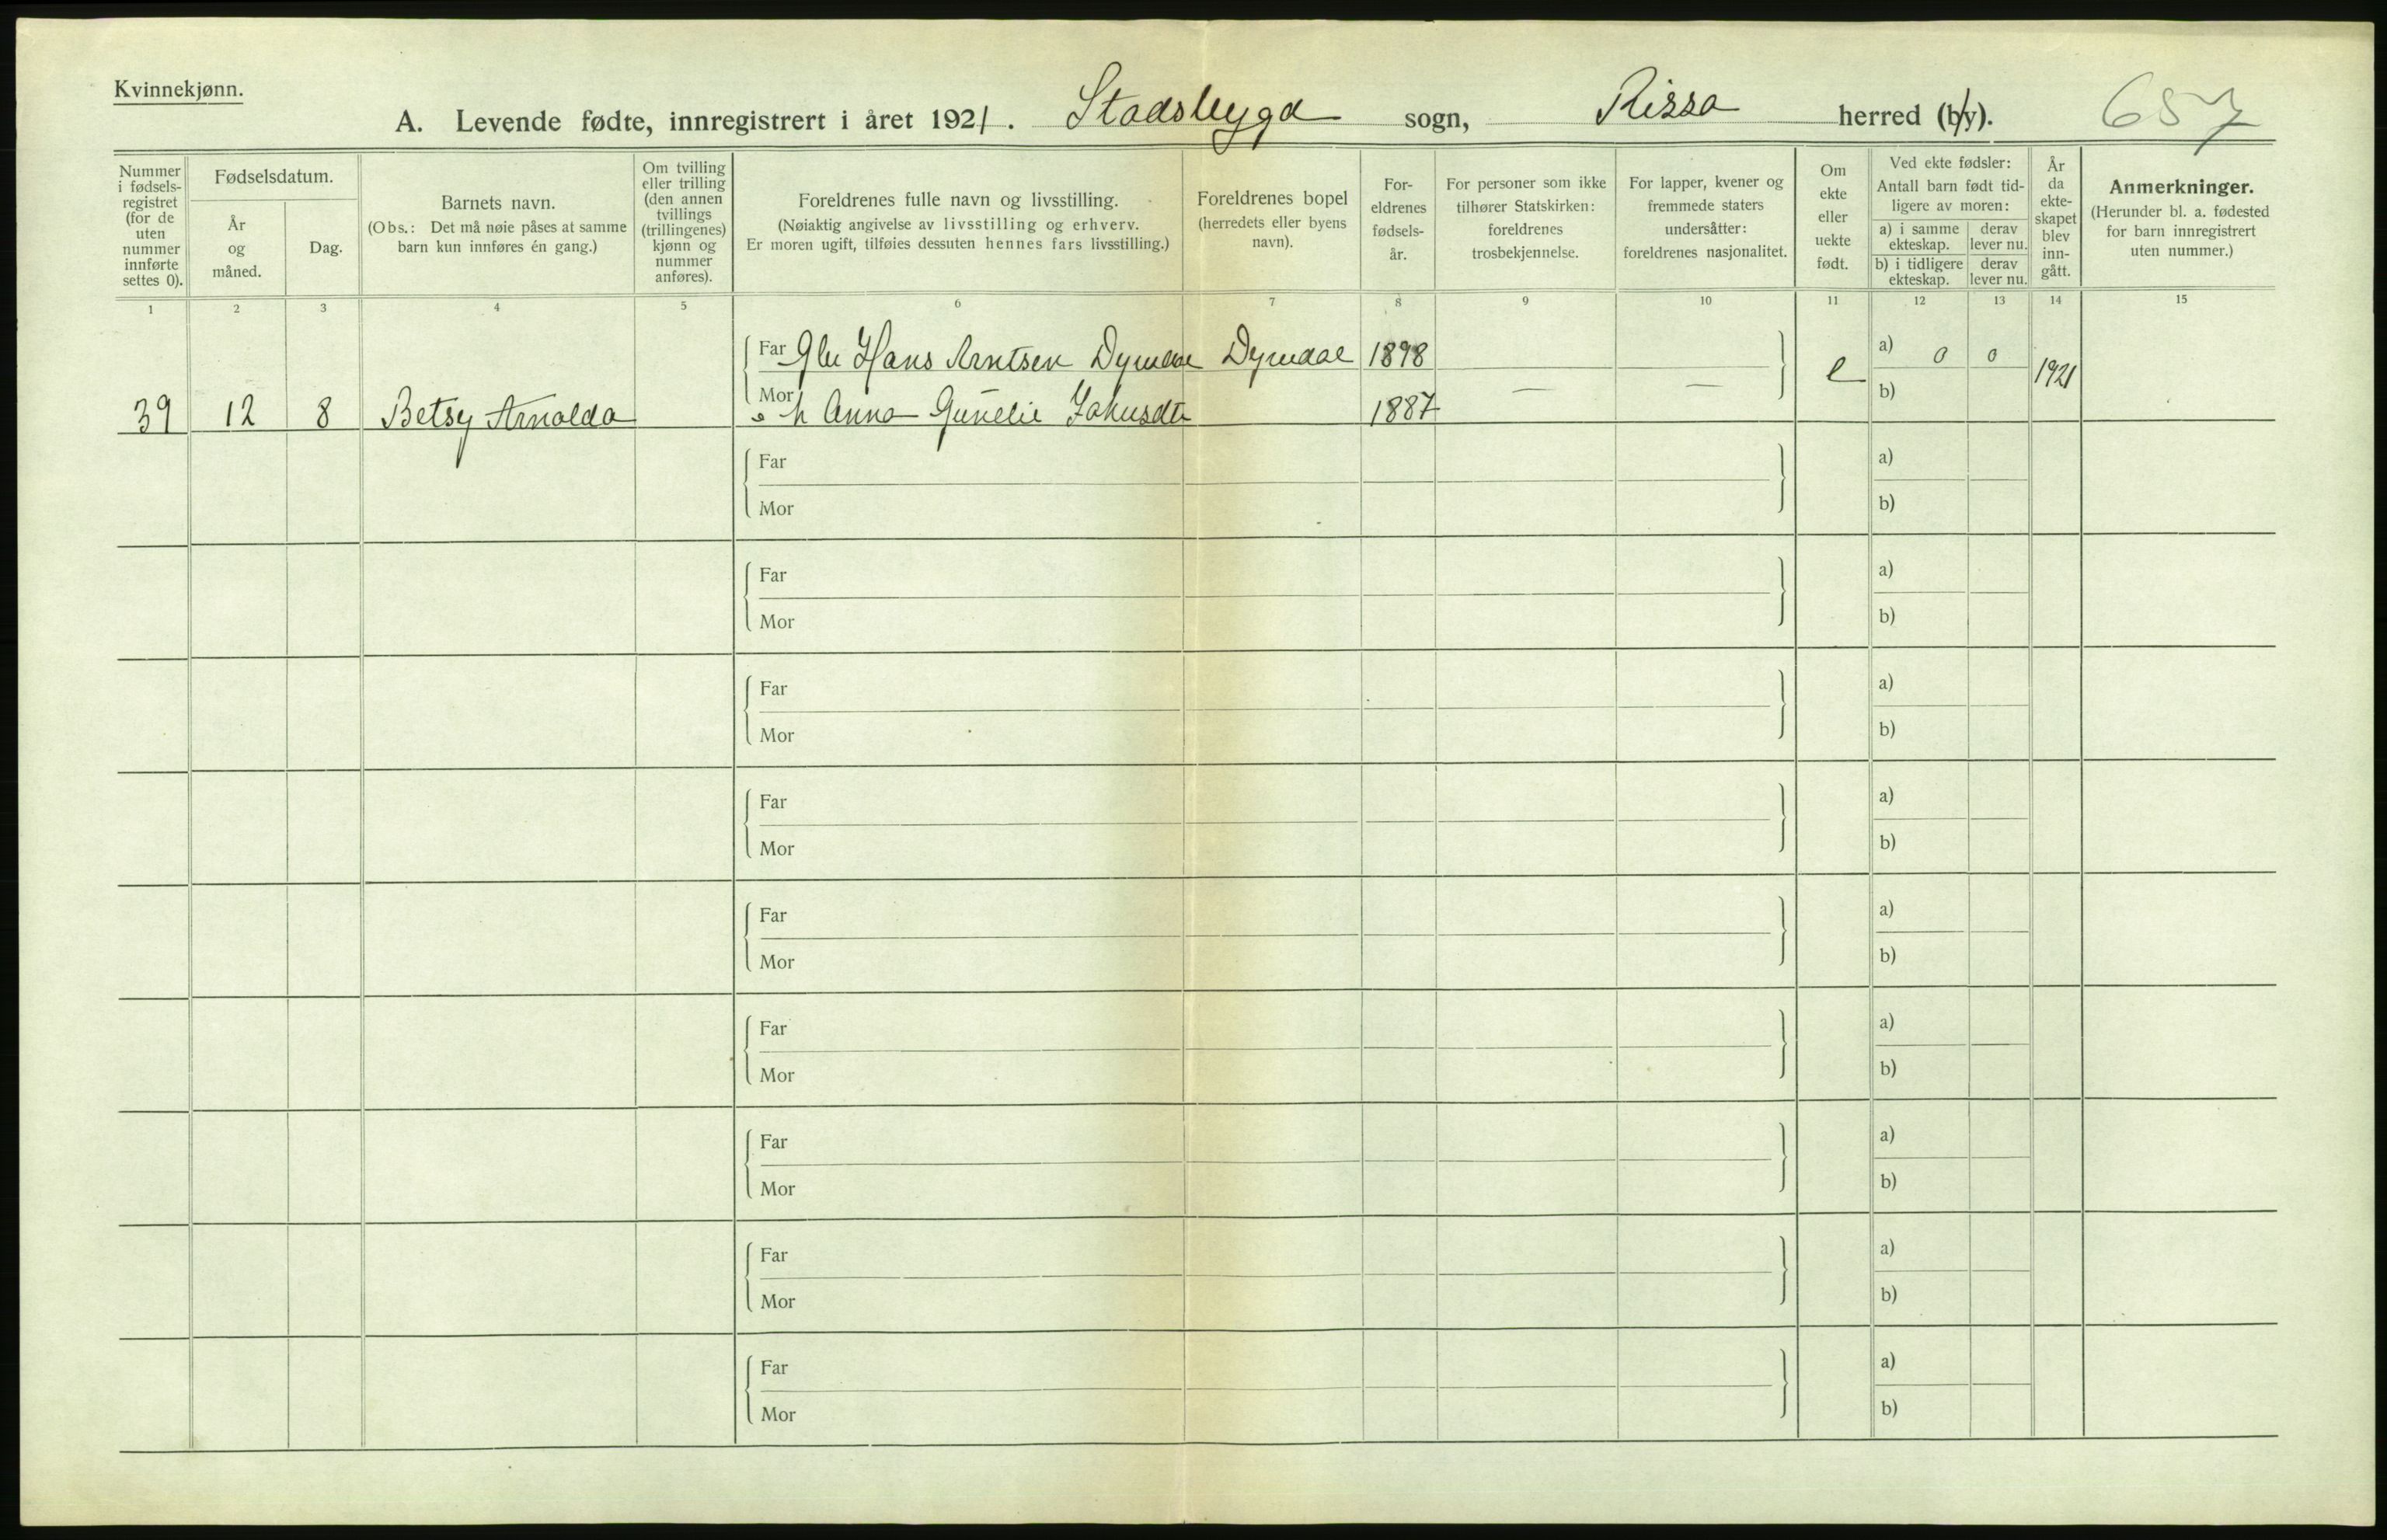 Kvinnekjønn.
A. Levende fødte, innregistrert i året 1921. Stadsbygd sogn, Rissa herred (by). 657
Nummer i fødsels-registret (for de uten nummer innførte settes 0).
Fødselsdatum.
År og måned.
Dag.
Barnets navn.
(Obs.: Det må nøie påses at samme barn kun innføres én gang.)
Om tvilling eller trilling (den annen tvillings (trillingenes) kjønn og nummer anføres).
Foreldrenes fulle navn og livsstilling.
(Nøiaktig angivelse av livsstilling og erhverv.
Er moren ugift, tilføies dessuten hennes fars livsstilling.)
Foreldrenes bopel
(herredets eller byens navn).
For-eldrenes fødsels-år.
For personer som ikke tilhører Statskirken: foreldrenes trosbekjennelse.
For lapper, kvener og fremmede staters undersåtter: foreldrenes nasjonalitet.
Om ekte eller uekte født.
Ved ekte fødsler:
Antall barn født tid-ligere av moren:
a) i samme ekteskap. derav lever nu.
b) i tidligere ekteskap. derav lever nu.
År da ekte-skapet blev inn-gått.
Anmerkninger.
(Herunder bl. a. fødested for barn innregistrert uten nummer.)
1 2 3 4 5 6 7 8 9 10 11 12 13 14 15
Far Hans Arntsen 1898 a) 0 0
39 12 8 Betsy Arnalda Mor Anna 1887 — — e b) 1921
Far a)
Mor b)
Far a)
Mor b)
Far a)
Mor b)
Far a)
Mor b)
Far a)
Mor b)
Far a)
Mor b)
Far a)
Mor b)
Far a)
Mor b)
Far a)
Mor b)